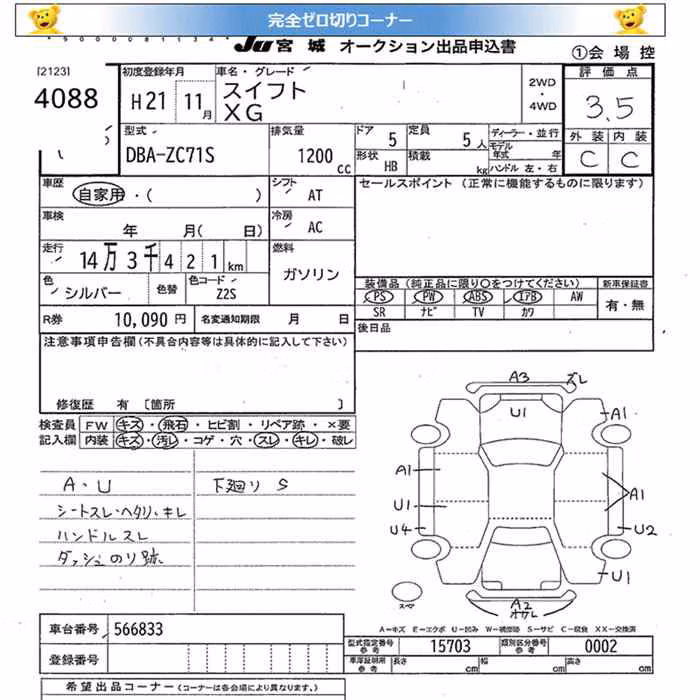 完全ゼロ切りコーナー
*50000081134*
JU 宮城 オークション出品申込書
①会場控
[2123]
4088
初度登録年月 H21 11月
車名・グレード スイフト
XG
2WD
・
4WD
評価点
3.5
外装 内装
C C
型式 DBA-ZC71S
排気量 1200 cc
ドア 5 定員 5人
形状 HB 積載 kg
ディーラー・並行
モデル年式 年
ハンドル 左・右
車歴 自家用・( )
シフト AT
セールスポイント (正常に機能するものに限ります)
車検 年 月( 日)
冷房 AC
走行 14万3千421km
燃料 ガソリン
色 シルバー 色替 色コード Z2S
装備品 (純正品に限り○をつけてください) 新車保証書
PS PW ABS エアB AW 有・無
SR ナビ TV カワ
R券 10,090円 名変通知期限 月 日
後日品
注意事項申告欄(不具合内容等は具体的に記入して下さい)
修復歴 有 〔箇所 〕
検査員記入欄
FW キズ・飛石・ヒビ割・リペア跡・×要
内装 キズ・汚レ・コゲ・穴・スレ・キレ・破レ
A・U
下廻り S
シートスレ・ヘタリ・キレ
ハンドルスレ
ダッシュのり跡
A3 ズレ
U1
A1
A1
A1
U1
U4
U2
U1
スペア
A2
オサレ
A−キズ E−エクボ U−凹み W−補修跡 S−サビ C−腐食 XX−交換済
車台番号 566833
登録番号
型式指定番号 参考 15703 類別区分番号 参考 0002
車庫証明用 参考 長さ 幅 高さ
希望出品コーナー(コーナーは各会場により異なります。)